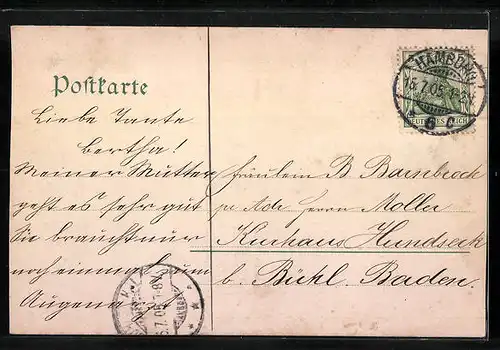 Postkarte
HAMBURG
15.7.05
6 c
DEUTSCHES REICH
Liebe Tante
Bertha!
Meiner Mutter
geht es sehr gut
Sie braucht nur
noch einmal zum
Augenarzt
Fräulein B. Barsbrock
pr Adr Herrn Moller
Kurhaus Hundseck
b. Bühl. Baden.
7.05